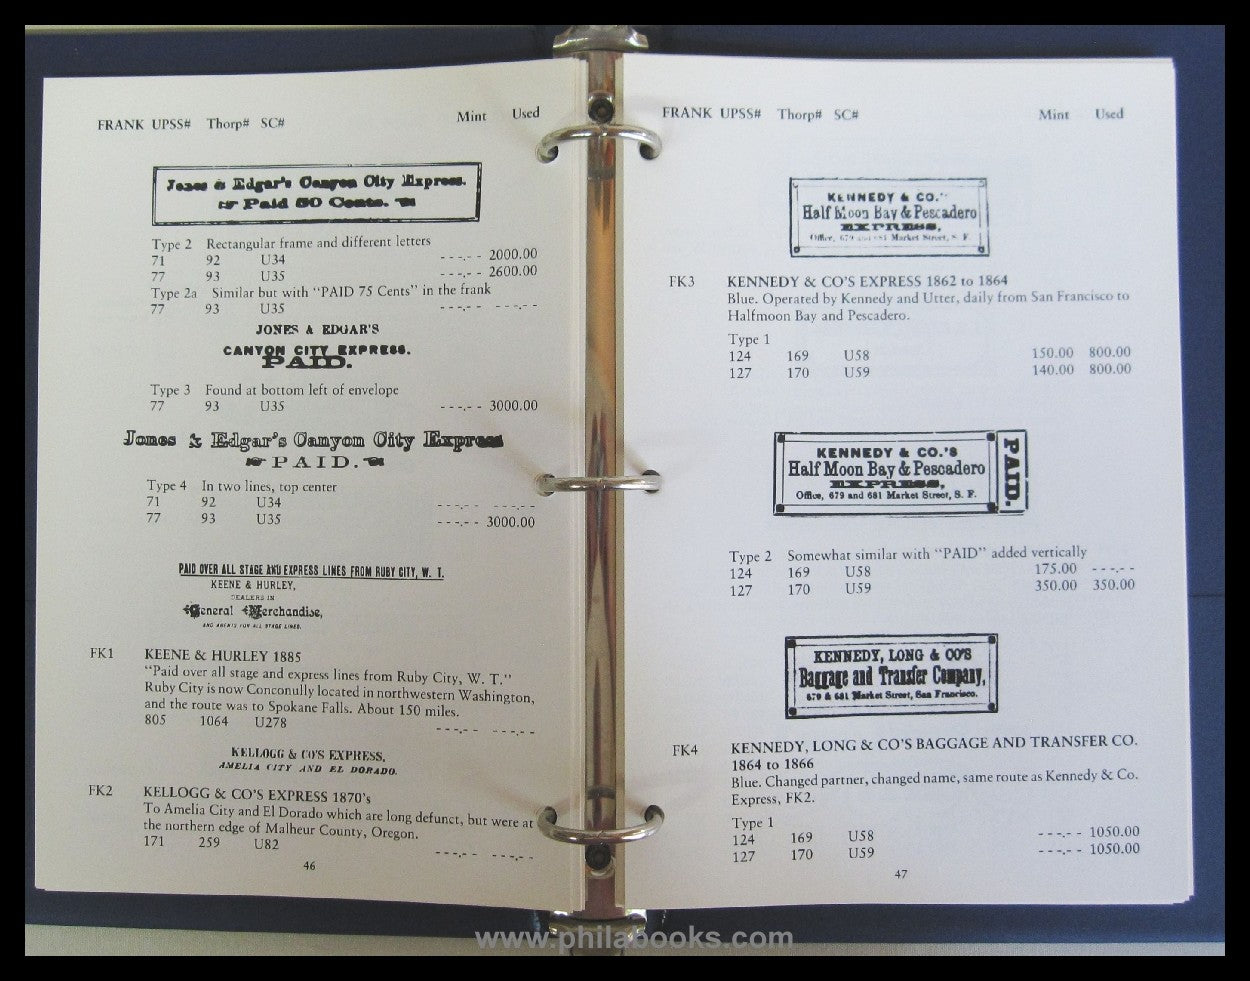 FRANK UPSS# Thorp# SC# Mint Used
Jones & Edgar's Canyon City Express.
Paid 50 Cents.
Type 2 Rectangular frame and different letters
71 92 U34 ---.-- 2000.00
77 93 U35 ---.-- 2600.00
Type 2a Similar but with "PAID 75 Cents" in the frank
77 93 U35 ---.-- ---.--
JONES & EDGAR'S
CANYON CITY EXPRESS.
PAID.
Type 3 Found at bottom left of envelope
77 93 U35 ---.-- 3000.00
Jones & Edgar's Canyon City Express
PAID.
Type 4 In two lines, top center
71 92 U34 ---.-- ---.--
77 93 U35 ---.-- 3000.00
PAID OVER ALL STAGE AND EXPRESS LINES FROM RUBY CITY, W. T.
KEENE & HURLEY,
DEALERS IN
General Merchandise,
AND AGENTS FOR ALL STAGE LINES.
FK1 KEENE & HURLEY 1885
"Paid over all stage and express lines from Ruby City, W. T."
Ruby City is now Conconully located in northwestern Washington,
and the route was to Spokane Falls. About 150 miles.
805 1064 U278 ---.-- ---.--
KELLOGG & CO'S EXPRESS,
AMELIA CITY AND EL DORADO.
FK2 KELLOGG & CO'S EXPRESS 1870's
To Amelia City and El Dorado which are long defunct, but were at
the northern edge of Malheur County, Oregon.
171 259 U82 ---.-- ---.--
46
FRANK UPSS# Thorp# SC# Mint Used
KENNEDY & CO."
Half Moon Bay & Pescadero
EXPRESS,
Office, 679 and 681 Market Street, S. F.
FK3 KENNEDY & CO'S EXPRESS 1862 to 1864
Blue. Operated by Kennedy and Utter, daily from San Francisco to
Halfmoon Bay and Pescadero.
Type 1
124 169 U58 150.00 800.00
127 170 U59 140.00 800.00
KENNEDY & CO.'S
Half Moon Bay & Pescadero
EXPRESS,
Office, 679 and 681 Market Street, S. F.
PAID.
Type 2 Somewhat similar with "PAID" added vertically
124 169 U58 175.00 ---.--
127 170 U59 350.00 350.00
KENNEDY, LONG & CO'S
Baggage and Transfer Company,
679 & 681 Market Street, San Francisco.
FK4 KENNEDY, LONG & CO'S BAGGAGE AND TRANSFER CO.
1864 to 1866
Blue. Changed partner, changed name, same route as Kennedy & Co.
Express, FK2.
Type 1
124 169 U58 ---.-- 1050.00
127 170 U59 ---.-- 1050.00
47
www.philabooks.com